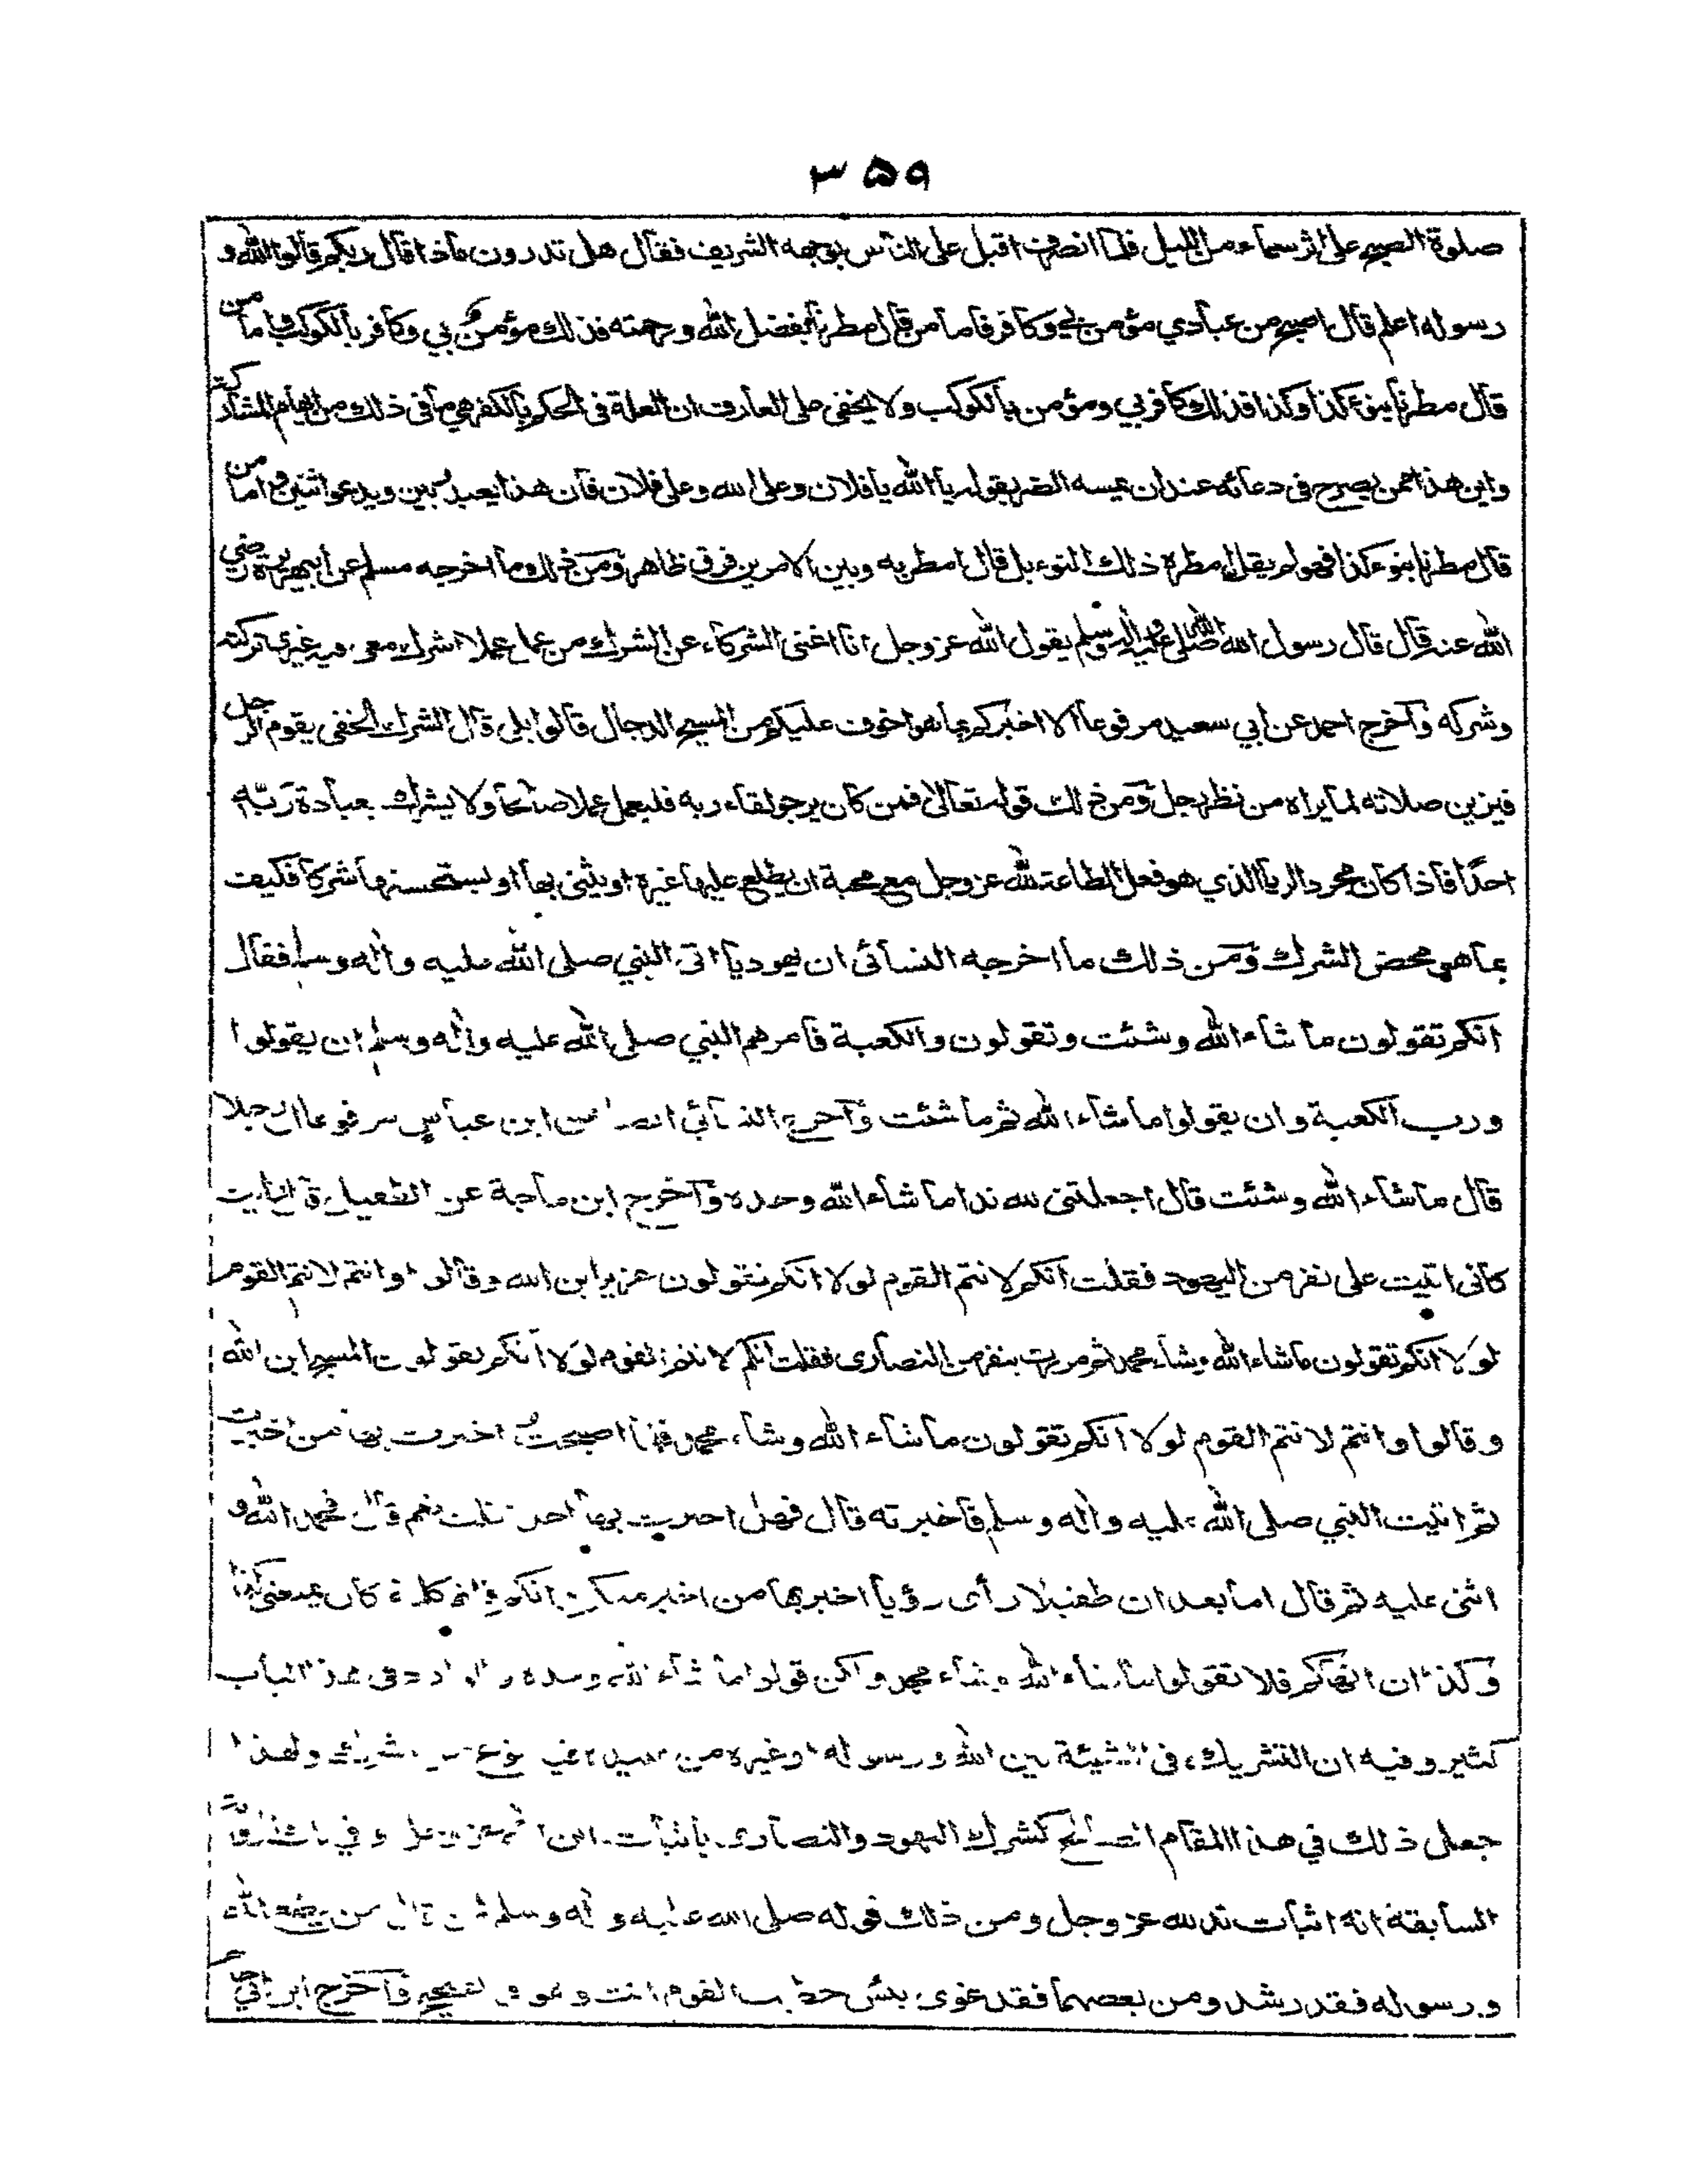 ۳۵۹
صلوة الصبح على اثر سماء من الليل فلما انصرف اقبل على الناس بوجهه الشريف فقال هل تدرون ماذا قال ربكم قالوا الله و
رسوله اعلم قال اصبح من عبادي مؤمن بي وكافر فاما من قال مطرنا بفضل الله ورحمته فذلك مؤمن بي وكافر بالكوكب واما من
قال مطرنا بنوء كذا وكذا فذلك كافر بي ومؤمن بالكوكب ولا يخفى على العارف ان العلة في الحكم بالكفر هي ما في ذلك من ايهام المشاركة
واين هذا ممن يصرح في دعائه عند ان يمسه الضر بقوله يا الله يا فلان وعلى الله وعلى فلان فان هذا يعبد ربين ويدعو اثنين واما من
قال مطرنا بنوء كذا فهو لم يقل امطره ذلك النوء بل قال امطر به وبين الامرين فرق ظاهر ومن ذلك ما اخرجه مسلم عن ابي هريرة رضي
الله عنه قال قال رسول الله صلى الله عليه واله وسلم يقول الله عز وجل انا اغنى الشركاء عن الشرك من عمل عملا اشرك معي فيه غيري تركته
وشركه وآخرج احمد عن ابي سعيد مرفوعا الا اخبركم بما هو اخوف عليكم من المسيح الدجال قالوا بلى قال الشرك الخفي يقوم الرجل
فيزين صلاته لما يراه من نظر رجل ومن ذلك قوله تعالى فمن كان يرجو لقاء ربه فليعمل عملا صالحا ولا يشرك بعبادة ربه
احدا فاذا كان مجرد الريا الذي هو فعل الطاعة لله عز وجل مع محبة ان يطلع عليها غيره او يثني بها او يستحسنها شركا فكيف
بما هو محض الشرك ومن ذلك ما اخرجه النسائى ان يهوديا اتى النبي صلى الله عليه واله وسلم فقال
انكم تقولون ما شاء الله وشئت وتقولون والكعبة فامرهم النبي صلى الله عليه واله وسلم ان يقولوا
ورب الكعبة وان يقولوا ما شاء الله ثم ما شئت وآخرج النسائي ايضا عن ابن عباس مرفوعا ان رجلا
قال ما شاء الله وشئت قال اجعلتني لله ندا ما شاء الله وحده وآخرج ابن ماجة عن الطفيل قال رايت
كاني اتيت على نفر من اليهود فقلت انكم لانتم القوم لولا انكم تقولون عزير ابن الله وقالوا وانتم لانتم القوم
لولا انكم تقولون ما شاء الله وشاء محمد ثم مررت بنفر من النصارى فقلت انكم لانتم القوم لولا انكم تقولون المسيح ابن الله
وقالوا وانتم لانتم القوم لولا انكم تقولون ما شاء الله وشاء محمد فلما اصبحت اخبرت بها من اخبرت
ثم اتيت النبي صلى الله عليه واله وسلم فاخبرته قال فهل اخبرت بها احدا قلت نعم قال فحمد الله و
اثنى عليه ثم قال اما بعد ان طفيلا رأى رؤيا اخبر بها من اخبر منكم انكم قلتم كلمة كان يمنعني كذا
وكذا ان انهاكم فلا تقولوا ما شاء الله وشاء محمد ولكن قولوا ما شاء الله وحده والوارد في هذا الباب
كثير وفيه ان التشريك في المشيئة بين الله ورسوله اوغيره من فيه نوع من شرك ولهذا
جعل ذلك في هذا المقام الصالح كشرك اليهود والنصارى باثبات ابن لله عز وجل وفي
السابقة انه اثبات ند لله عز وجل ومن ذلك قوله صلى الله عليه واله وسلم لمن قال من يطع الله
ورسوله فقد رشد ومن يعصهما فقد غوى بئس خطيب القوم انت وهو في الصحيح وآخرج ابن ابي